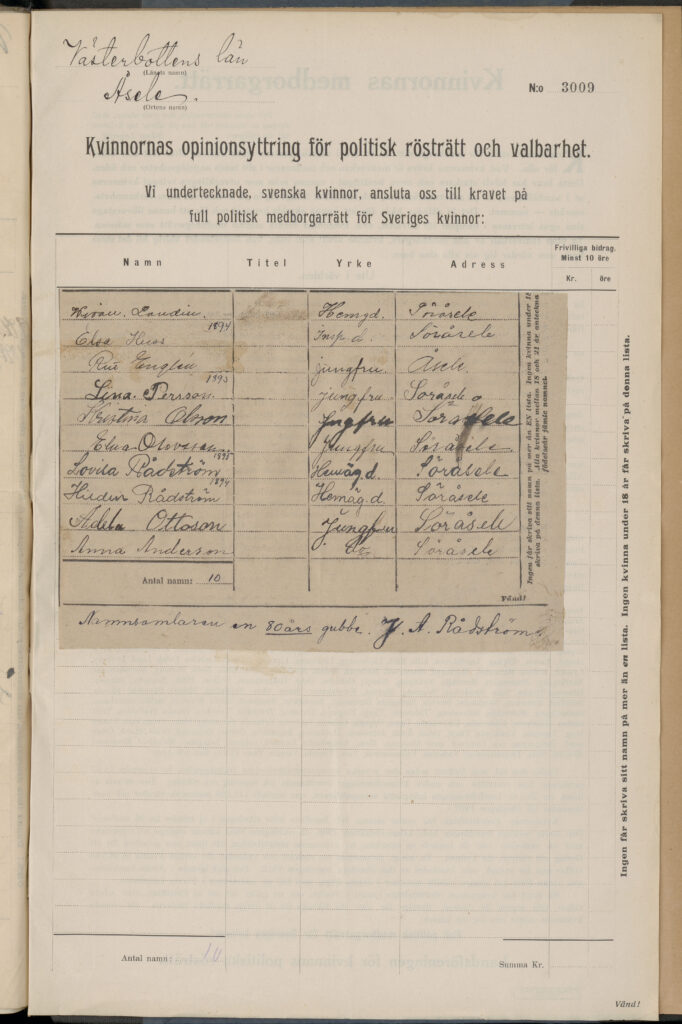 Västerbottens län
(Länets namn)
Åsele.
(Ortens namn)
N:o 3009
Kvinnornas opinionsyttring för politisk rösträtt och valbarhet.
Vi undertecknade, svenska kvinnor, ansluta oss till kravet på
full politisk medborgarrätt för Sveriges kvinnor:
Namn Titel Yrke Adress Frivilliga bidrag. Minst 10 öre
Kr. öre
Landin. Hemgd. Söråsele
1894
Elsa Huss Insp. d. Söråsele
Englén jungfru. Åsele.
1893
Lina. Persson jungfru Söråsele
Kristina Olsson Jngfru Söråsele
Elna Olovsson Jungfru Söråsele
1895
Lovisa Rådström Hemäg. d. Söråsele
1894
Rådström Hemäg. d. Söråsele
Adéla Ottoson Jungfru Söråsele
Anna Anderson Söråsele
Antal namn: 10
Vänd!
Namnsamlaren en 80 års gubbe. J. A. Rådström
Ingen får skriva sitt namn på mer än EN lista. Ingen kvinna under 18
skriva på denna lista. Alla kvinnor mellan 18 och 21 år anteckna
födelseår jämte namnet.
Ingen får skriva sitt namn på mer än en lista. Ingen kvinna under 18 år får skriva på denna lista.
Antal namn: 10
Summa Kr.
Vänd!